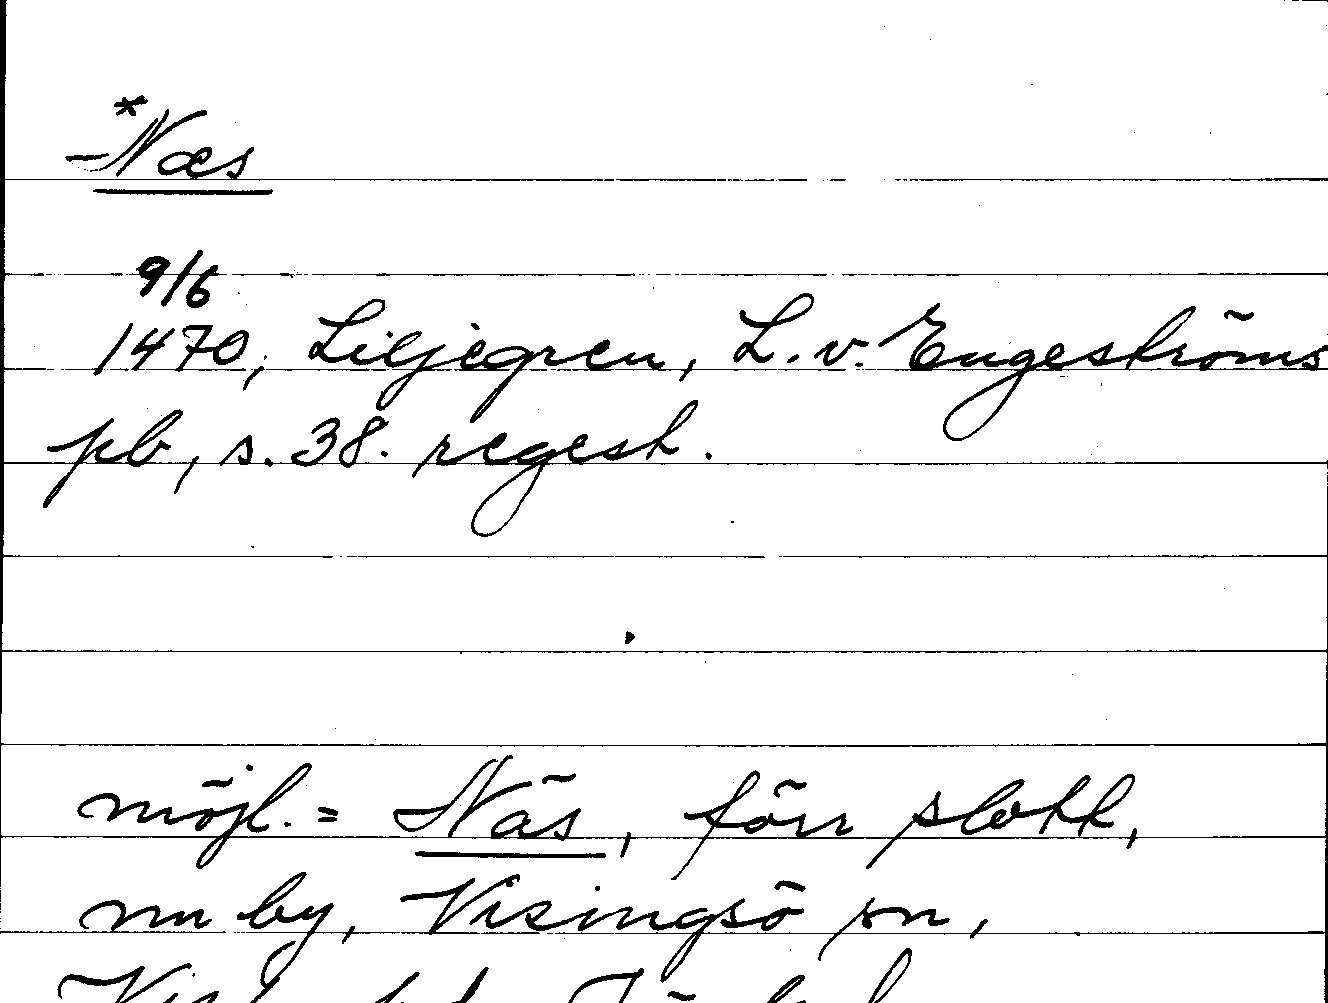 *Næs
9/6
1470, Liljegren, L. v. Engeströms
pb, s. 38. regest.
möjl. = Näs, förr slott,
nu by, Visingsö sn,